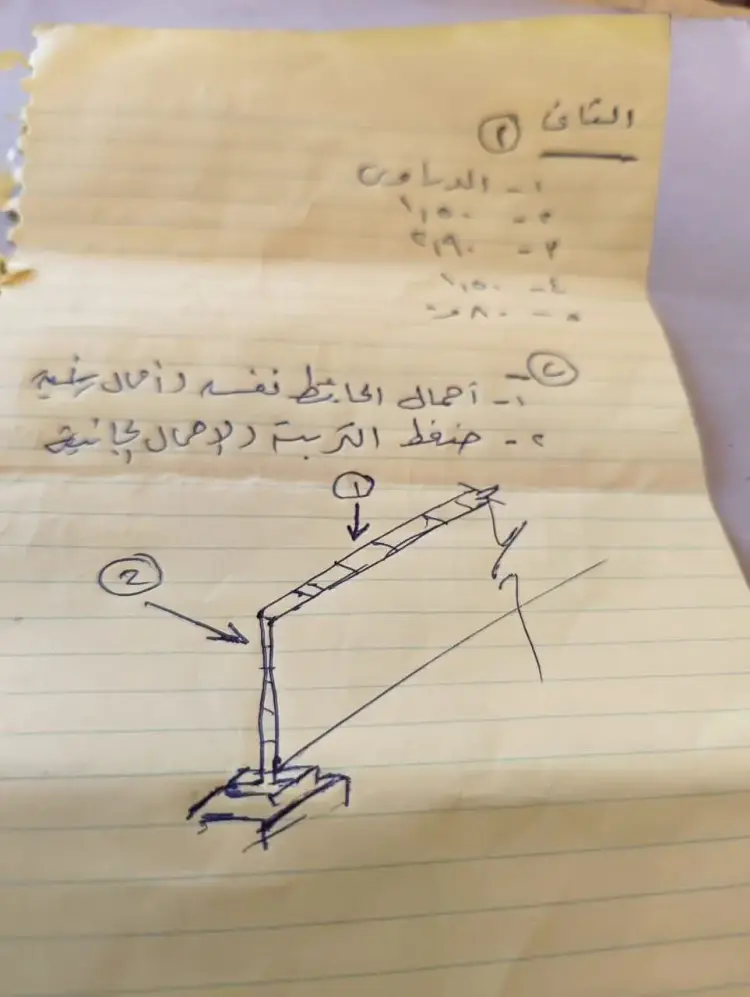 الثاني
٢
١- الدساوى
٢- ١,٥٠
٣- ٢,٩٠
٤- ١,٥٠
٥- ٨٠
ب-
١- أحمال الحائط نفسه وأحمال رئيسية
٢- ضغط التربة والاحمال الجانبية
1
2